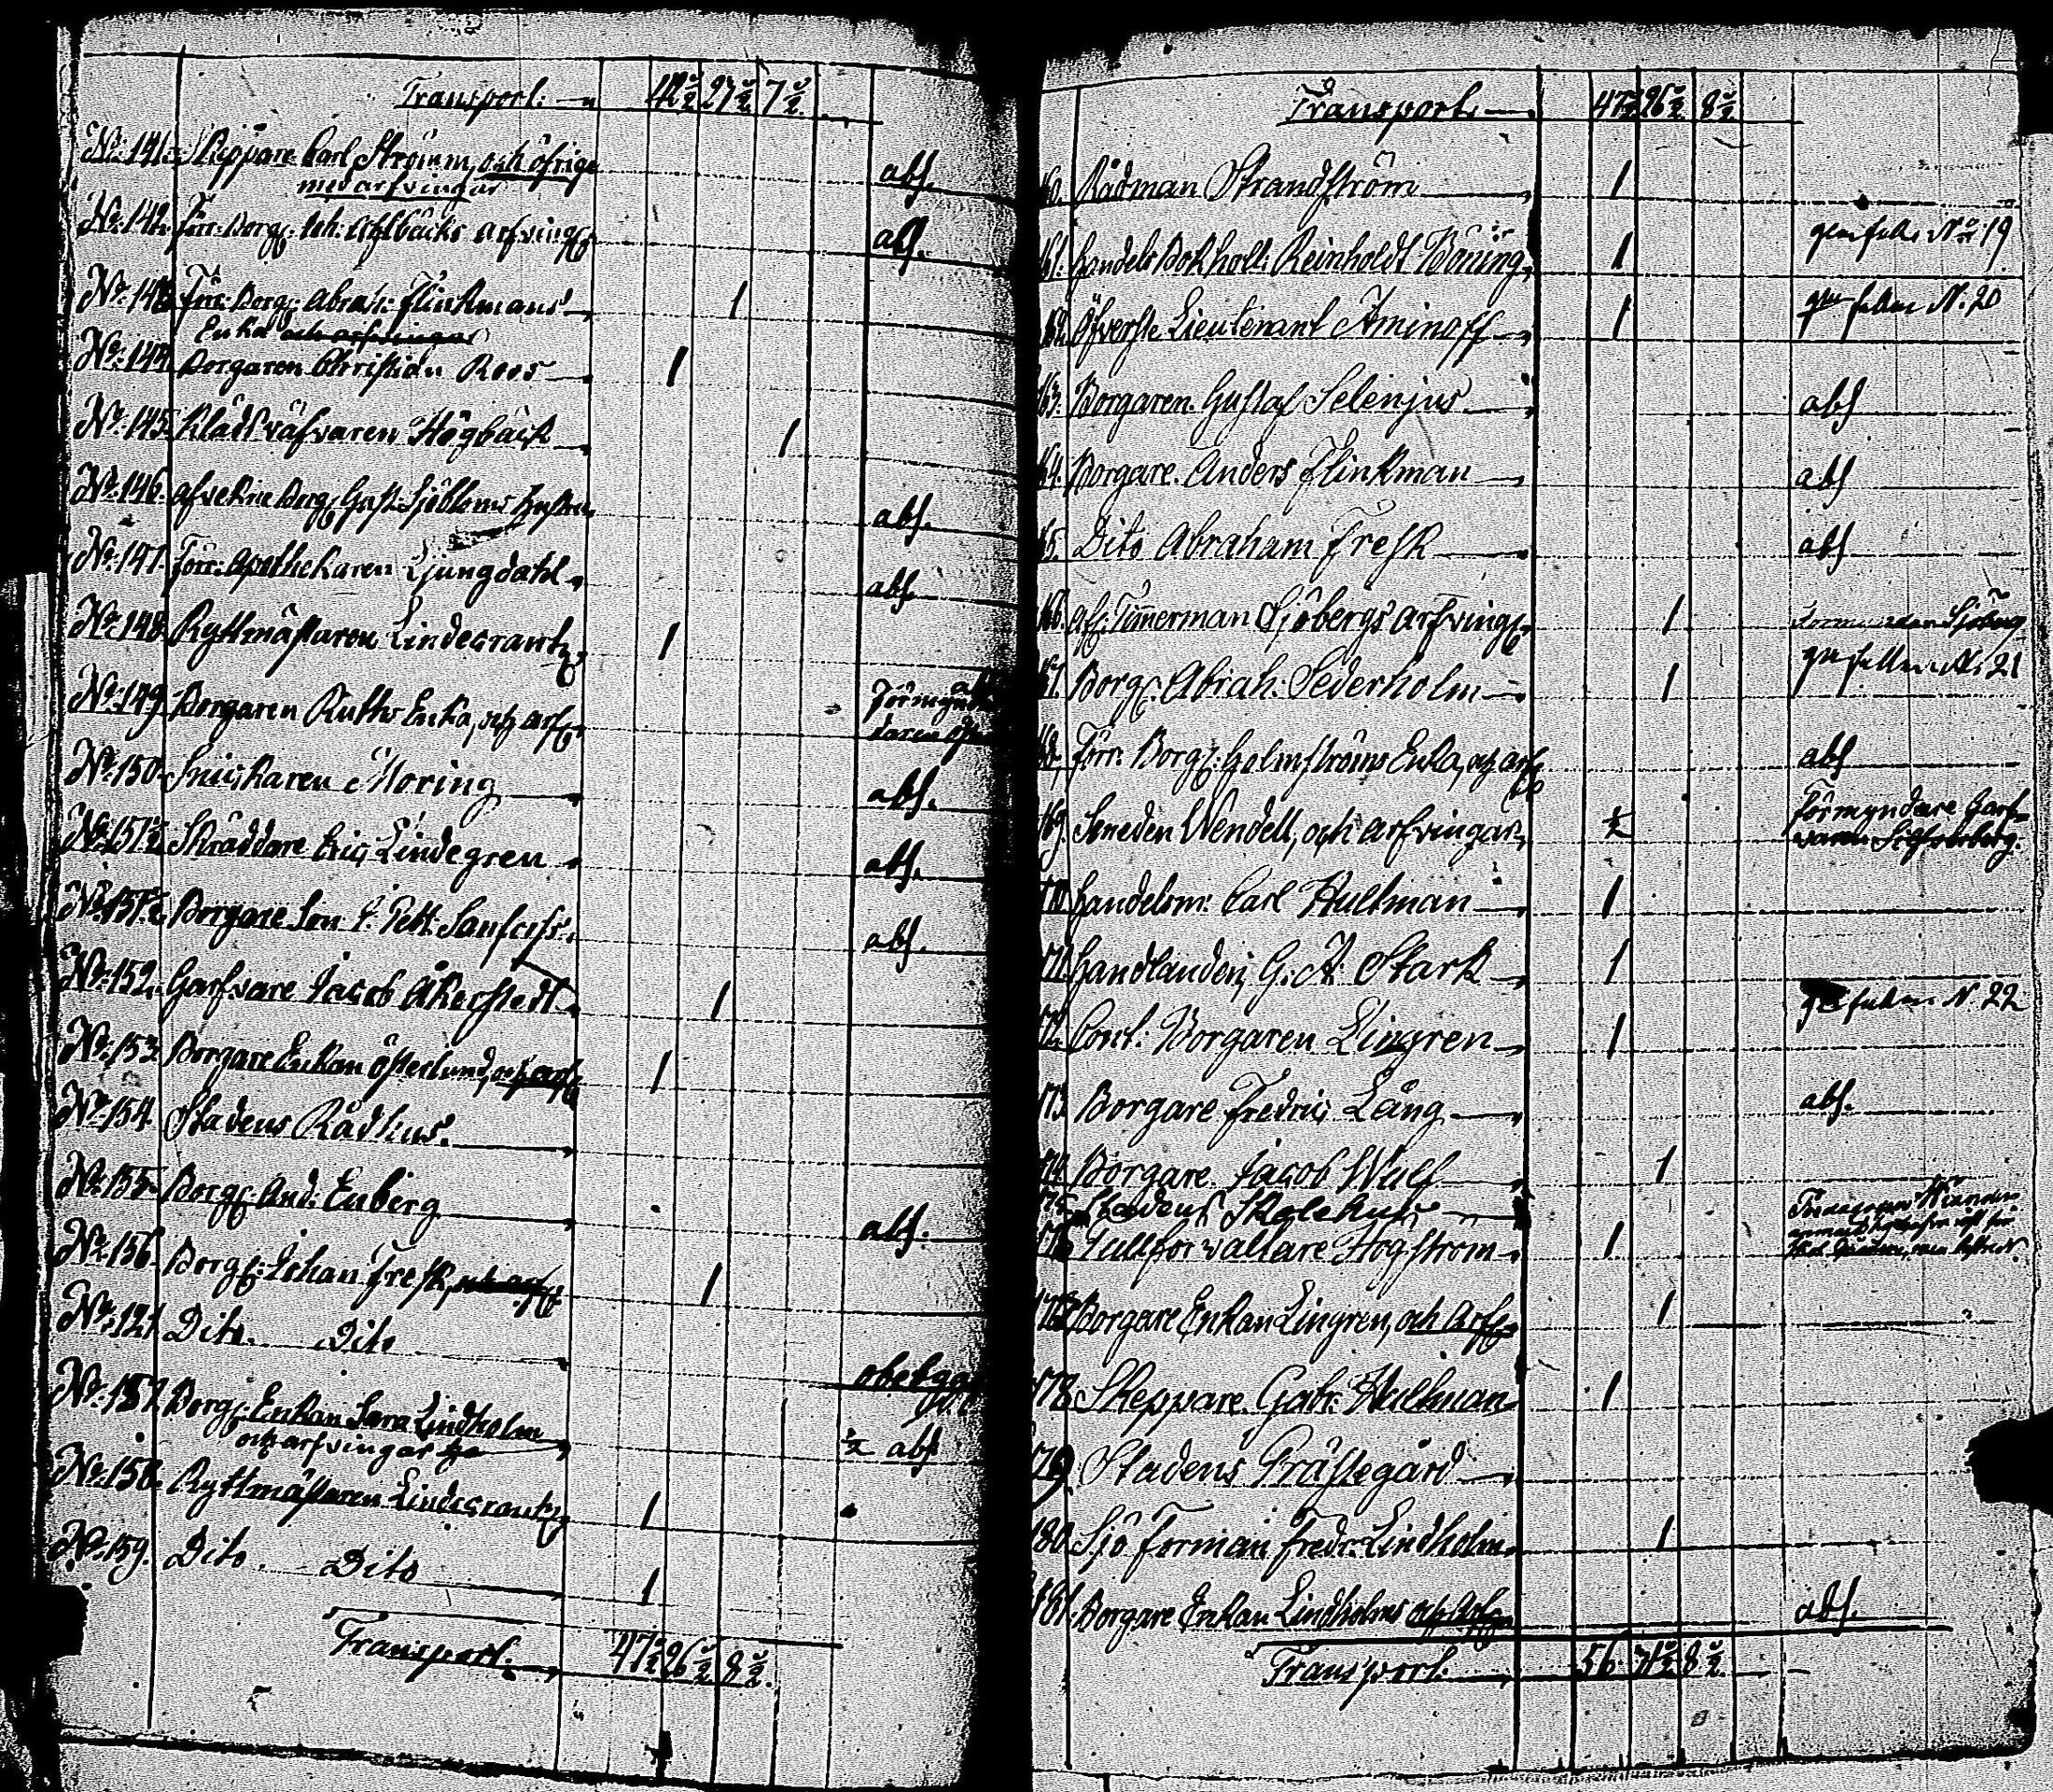 Transport. 42½ 27½ 7½
No. 141. Skeppare Carl Strömm, och öfrige abs.
medarfvingar
No. 142. Förr: Borg: Joh: Ahlbäcks arfving: abs.
No. 143. Förr: Borg: Abrah: Flinkmans 1
Enka och arfvingar
No. 144. Borgaren Christian Roos 1
No. 145. Klädsväfvaren Högbäck 1
No. 146. Borg: Gust: Sjöbloms Hustru abs.
No. 147. Förr: Apothekaren Ljungdahl abs.
No. 148. Ryttmästaren Lindecrantz 1
No. 149. Borgaren Ruths Enka, och arf:
No. 150. Snickaren Moring abs.
No. 151. Skräddare Eric Lindegren abs.
No. 151. Borgare Son abs.
No. 152. Garfvare Jacob Åkerstedt 1
No. 153. Borgare Enkan Österlund, och arf: 1
No. 154. Stadens Rådhus.
No. 155. Borg: And: Enberg abs.
No. 156. Borg: Johan Fresk, och arf: 1
No. 121. Dito Dito
No. 157. Borg: Enkan Sara Lindholm
och arfvingar ½ abs
No. 158. Ryttmästaren Lindecrantz 1
No. 159. Dito Dito 1
Transport. 47½ 26½ 8½
Transport. 47½ 26½ 8½
60. Rådman Strandström 1
61. Handels Bokholl: Reinholdt Böning 1 No. 19
62. Öfverste Lieutenant Aminoff 1 N. 20
63. Borgaren Gustaf Selenius abs
64. Borgare Anders Flinkman abs
65. Dito Abraham Fresk abs
66. Afl: Timmerman Sjöbergs arfving: 1 Sjöberg
67. Borg: Abrah: Sederholm 1 No. 21
68. Förr: Borg: Holmströms Enka, och arf: abs
69. Smeden Wendell, och arfvingar ½ Förmyndare Garf-
varen Silfverberg.
70. Handelsm: Carl Hultman 1
71. Handlanden G: A: Stark 1
72. Cont: Borgaren Lingren 1 N. 22
73. Borgare Fredric Lång abs.
74. Borgare Jacob Wulf 1
75. Stadens Skolehus
176. Tullförvaltare Högström 1
177. Borgare Enkan Lingren, och Arf: 1
178. Skeppare Gabr: Hultman 1
179. Stadens Prästegård
180. Sjö Förman Fredr: Lindholm 1
181. Borgare Enkan Lindholms och Arf: abs.
Transport. 56 31½ 8½